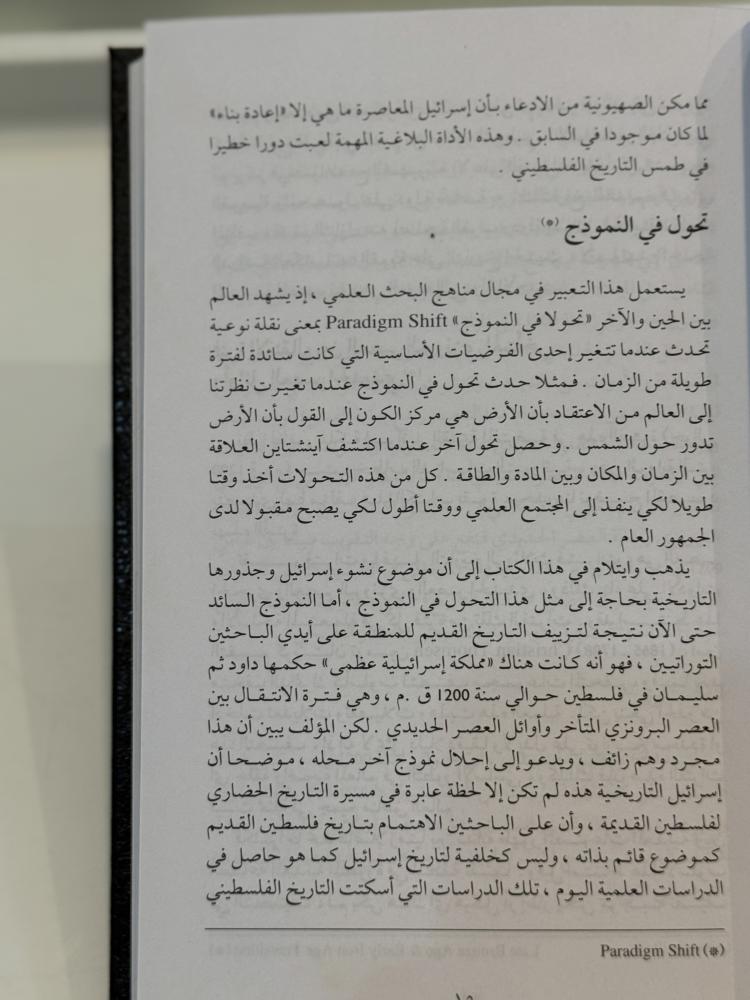 مما مكن الصهيونية من الادعاء بأن إسرائيل المعاصرة ما هي إلا «إعادة بناء»
لما كان موجودا في السابق . وهذه الأداة البلاغية المهمة لعبت دورا خطيرا
في طمس التاريخ الفلسطيني .
تحول في النموذج (*)
يستعمل هذا التعبير في مجال مناهج البحث العلمي ، إذ يشهد العالم
بين الحين والآخر «تحولا في النموذج» Paradigm Shift بمعنى نقلة نوعية
تحدث عندما تتغير إحدى الفرضيات الأساسية التي كانت سائدة لفترة
طويلة من الزمان . فمثلا حدث تحول في النموذج عندما تغيرت نظرتنا
إلى العالم من الاعتقاد بأن الأرض هي مركز الكون إلى القول بأن الأرض
تدور حول الشمس . وحصل تحول آخر عندما اكتشف آينشتاين العلاقة
بين الزمان والمكان وبين المادة والطاقة . كل من هذه التحولات أخذ وقتا
طويلا لكي ينفذ إلى المجتمع العلمي ووقتا أطول لكي يصبح مقبولا لدى
الجمهور العام .
يذهب وايتلام في هذا الكتاب إلى أن موضوع نشوء إسرائيل وجذورها
التاريخية بحاجة إلى مثل هذا التحول في النموذج ، أما النموذج السائد
حتى الآن نتيجة لتزييف التاريخ القديم للمنطقة على أيدي الباحثين
التوراتيين ، فهو أنه كانت هناك «مملكة إسرائيلية عظمى» حكمها داود ثم
سليمان في فلسطين حوالي سنة 1200 ق .م ، وهي فترة الانتقال بين
العصر البرونزي المتأخر وأوائل العصر الحديدي . لكن المؤلف يبين أن هذا
مجرد وهم زائف ، ويدعو إلى إحلال نموذج آخر محله ، موضحا أن
إسرائيل التاريخية هذه لم تكن إلا لحظة عابرة في مسيرة التاريخ الحضاري
لفلسطين القديمة ، وأن على الباحثين الاهتمام بتاريخ فلسطين القديم
كموضوع قائم بذاته ، وليس كخلفية لتاريخ إسرائيل كما هو حاصل في
الدراسات العلمية اليوم ، تلك الدراسات التي أسكتت التاريخ الفلسطيني
(*) Paradigm Shift